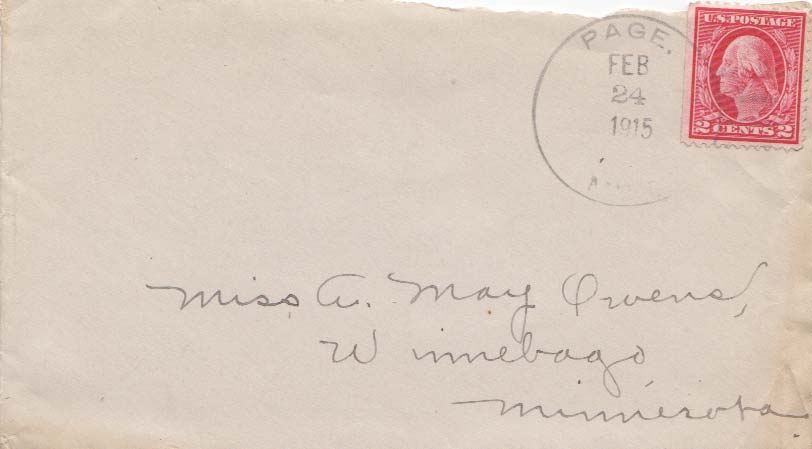 PAGE.
FEB
24
1915
U.S. POSTAGE
2 CENTS 2
Miss A. May Owens,
Winnebago,
Minnesota.